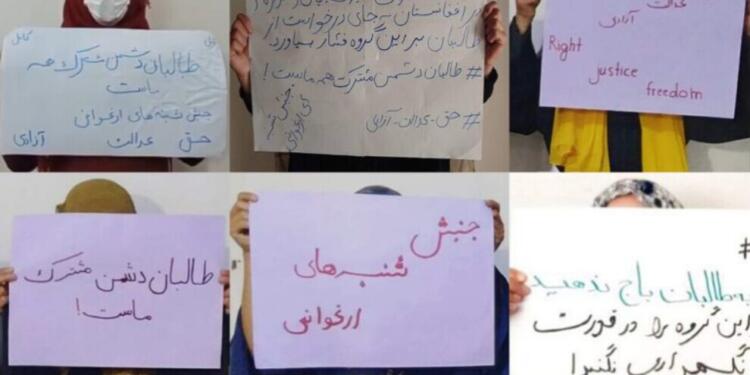 کابل
طالبان دشمن مشترک همه
ماست
جنبش شنبه‌های ارغوانی
حق عدالت آزادی
در افغانستان به جای درخواست از
طالبان بر این گروه فشار بیاورد.
# طالبان دشمن مشترک همه ماست!
# حق - عدالت - آزادی
جنبش شنبه
های ارغوانی
عدالت
آزادی
Right
justice
freedom
طالبان دشمن مشترک
ماست!
جنبش
شنبه‌های
ارغوانی
#
به طالبان باج ندهید
این گروه را در قدرت
نگهداری نکنید!